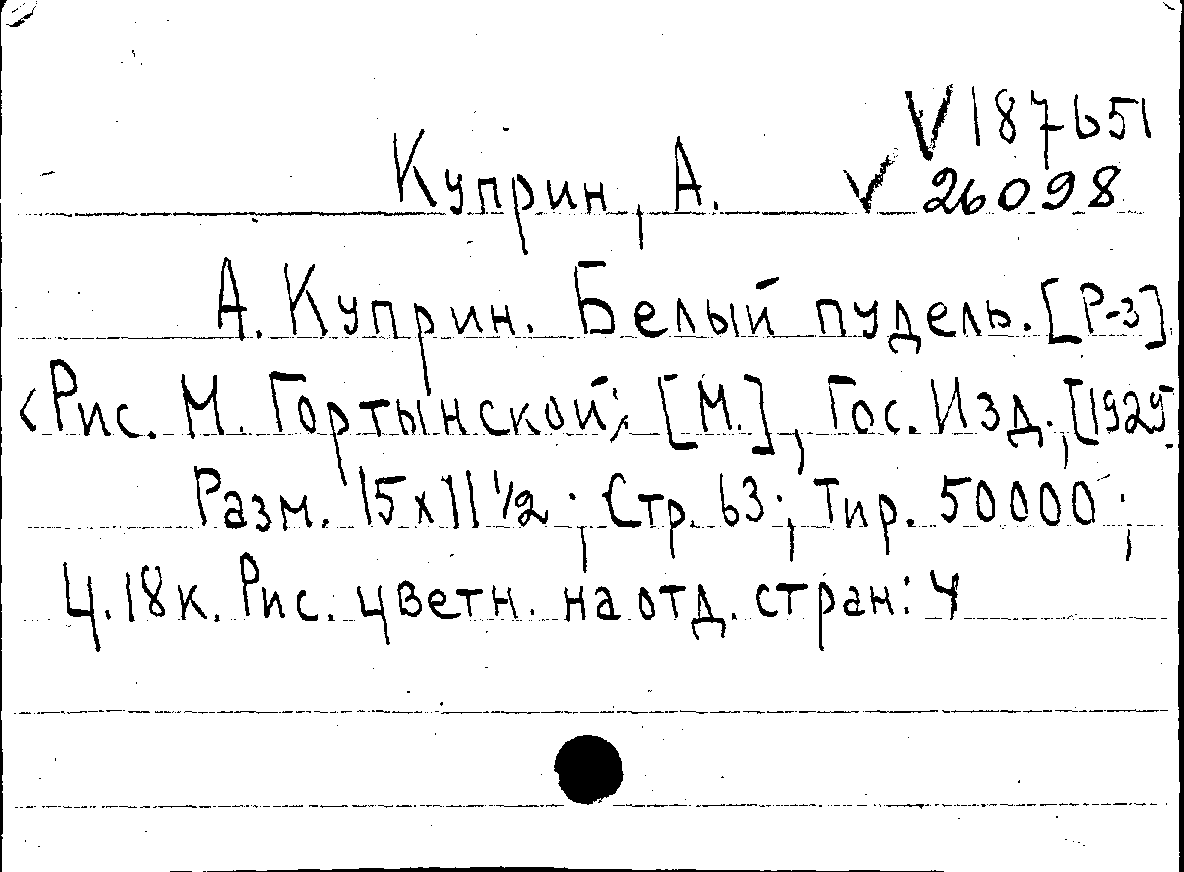 V 187651
Куприн, А. V 26098
А. Куприн. Белый пудель. [Р-з]
<Рис. М. Гортынской; [М.], Гос. Изд., [1929]
Разм. 15х11 1/2; Стр. 63; Тир. 50000;
Ц. 18к. Рис. цветн. на отд. стран: 4